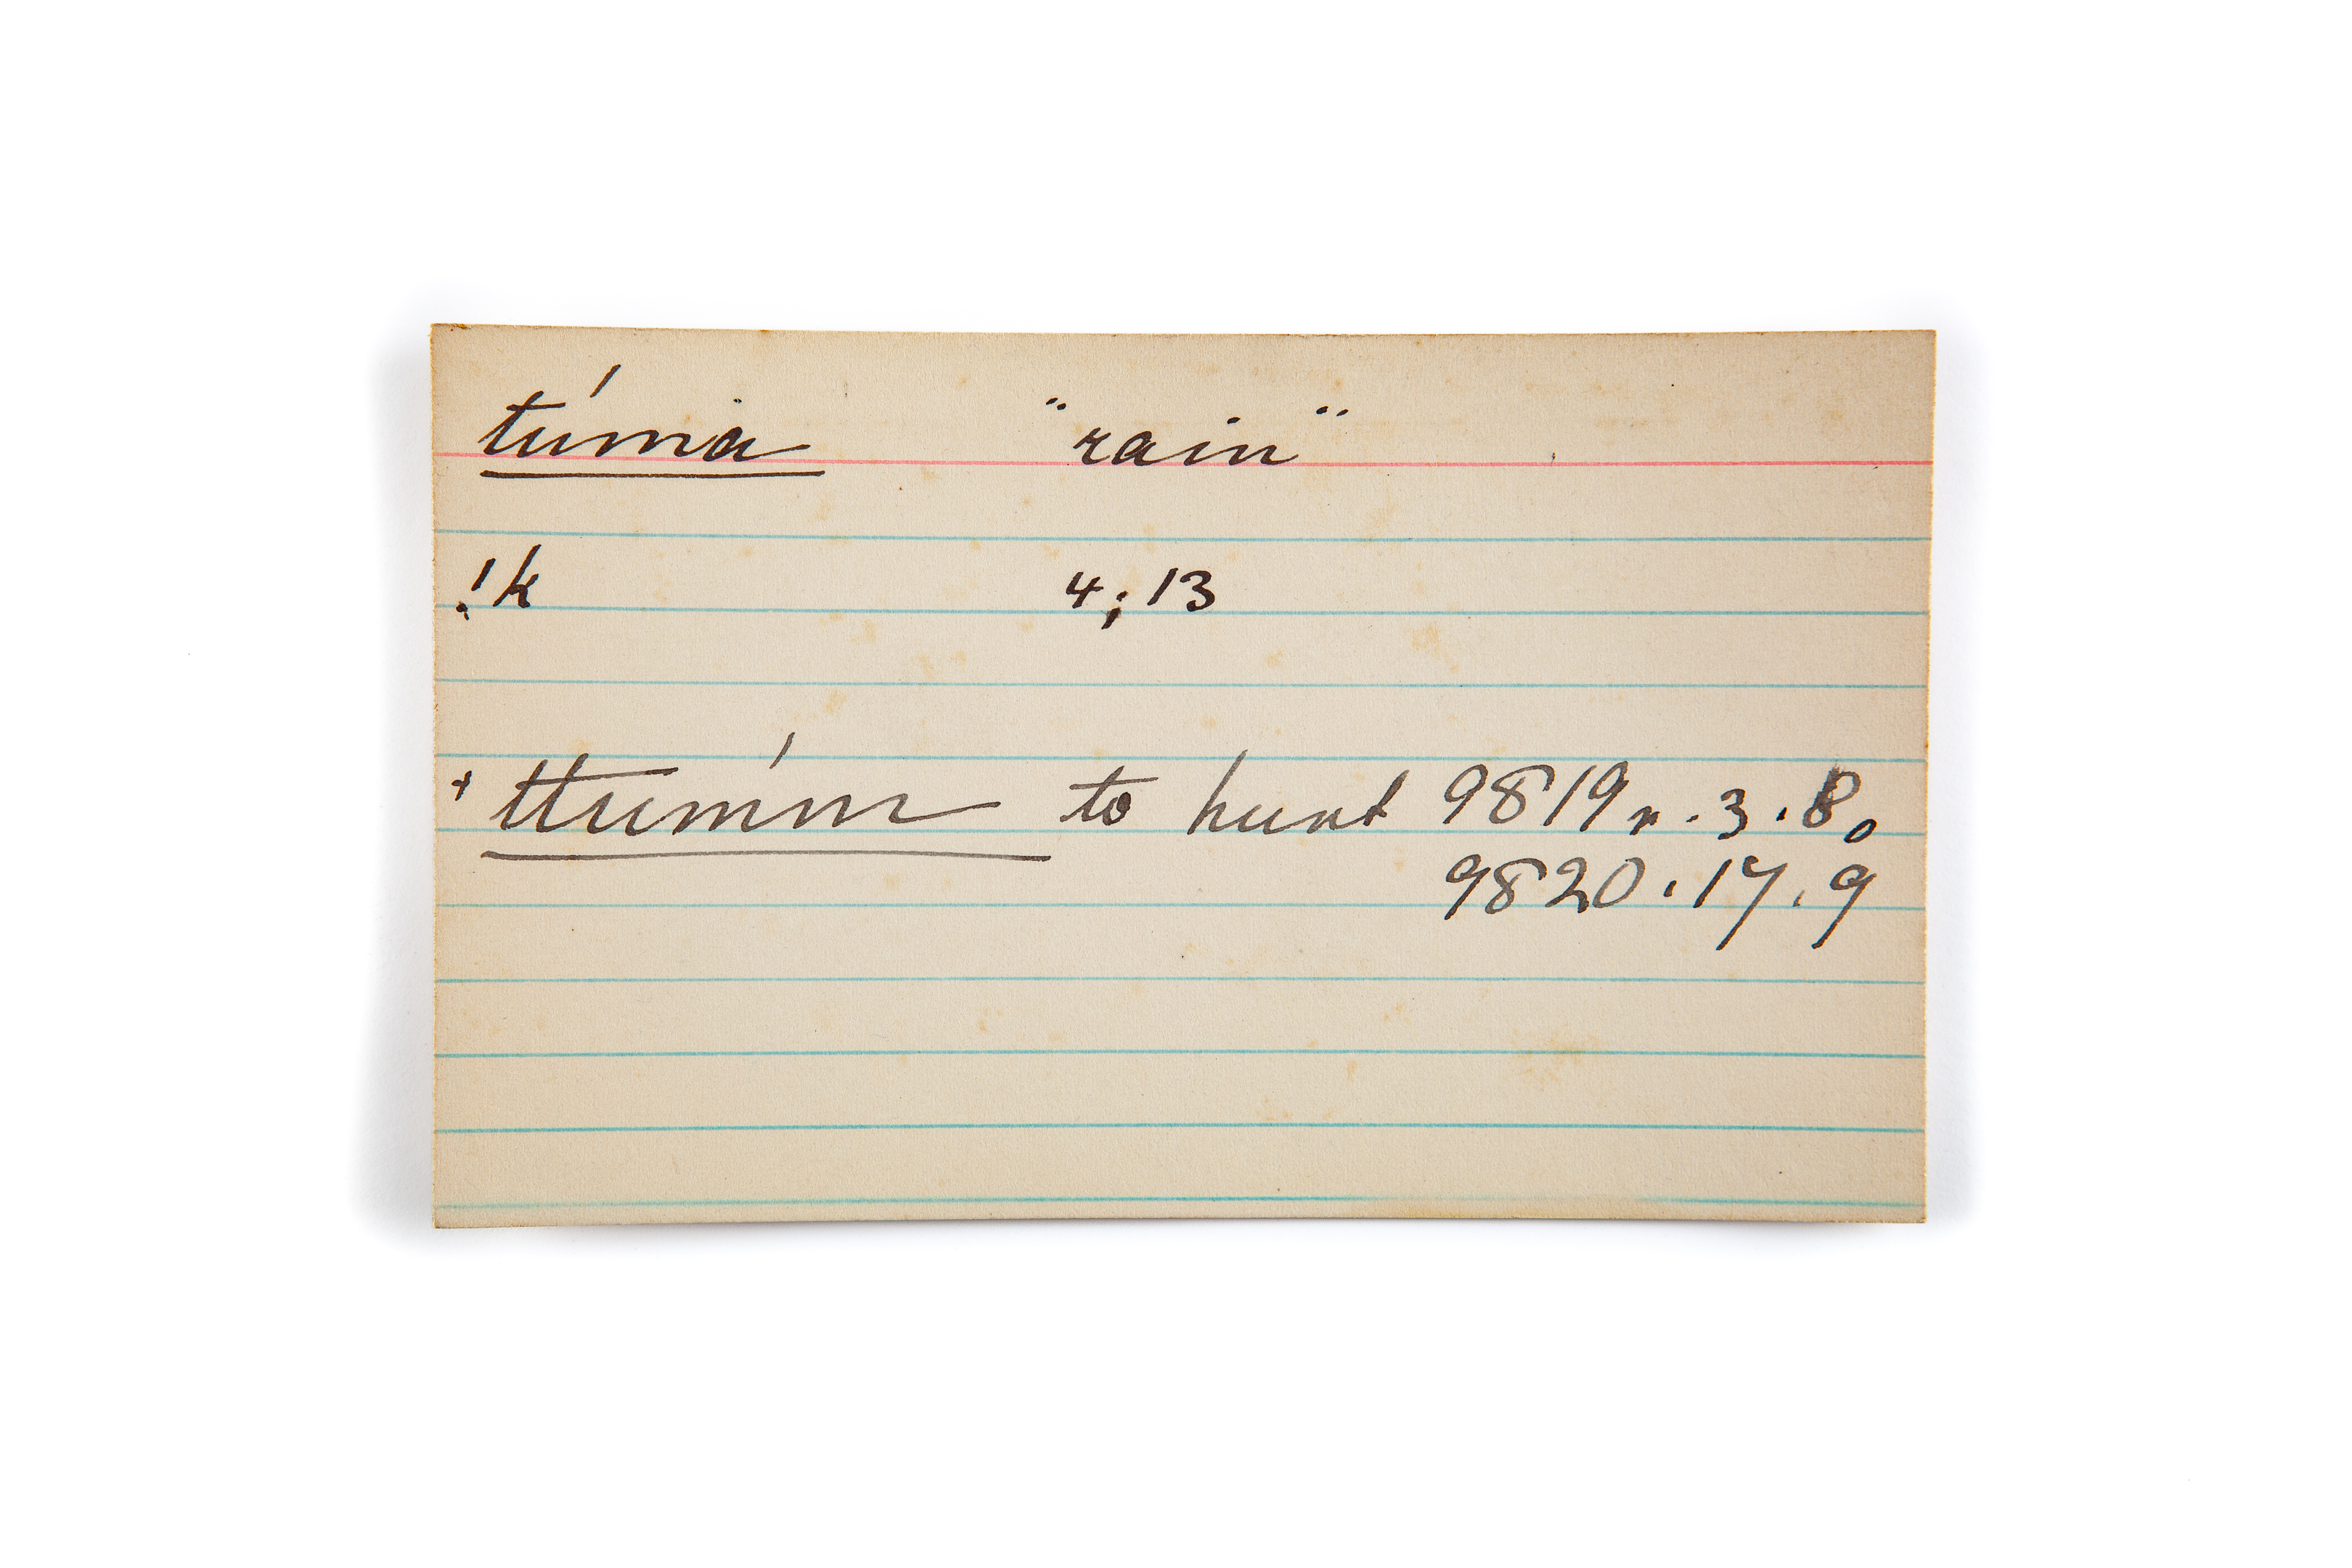 túma "rain"
!k 4; 13
+ ttumm to hunt 9819r.3.8o
9820.17.9